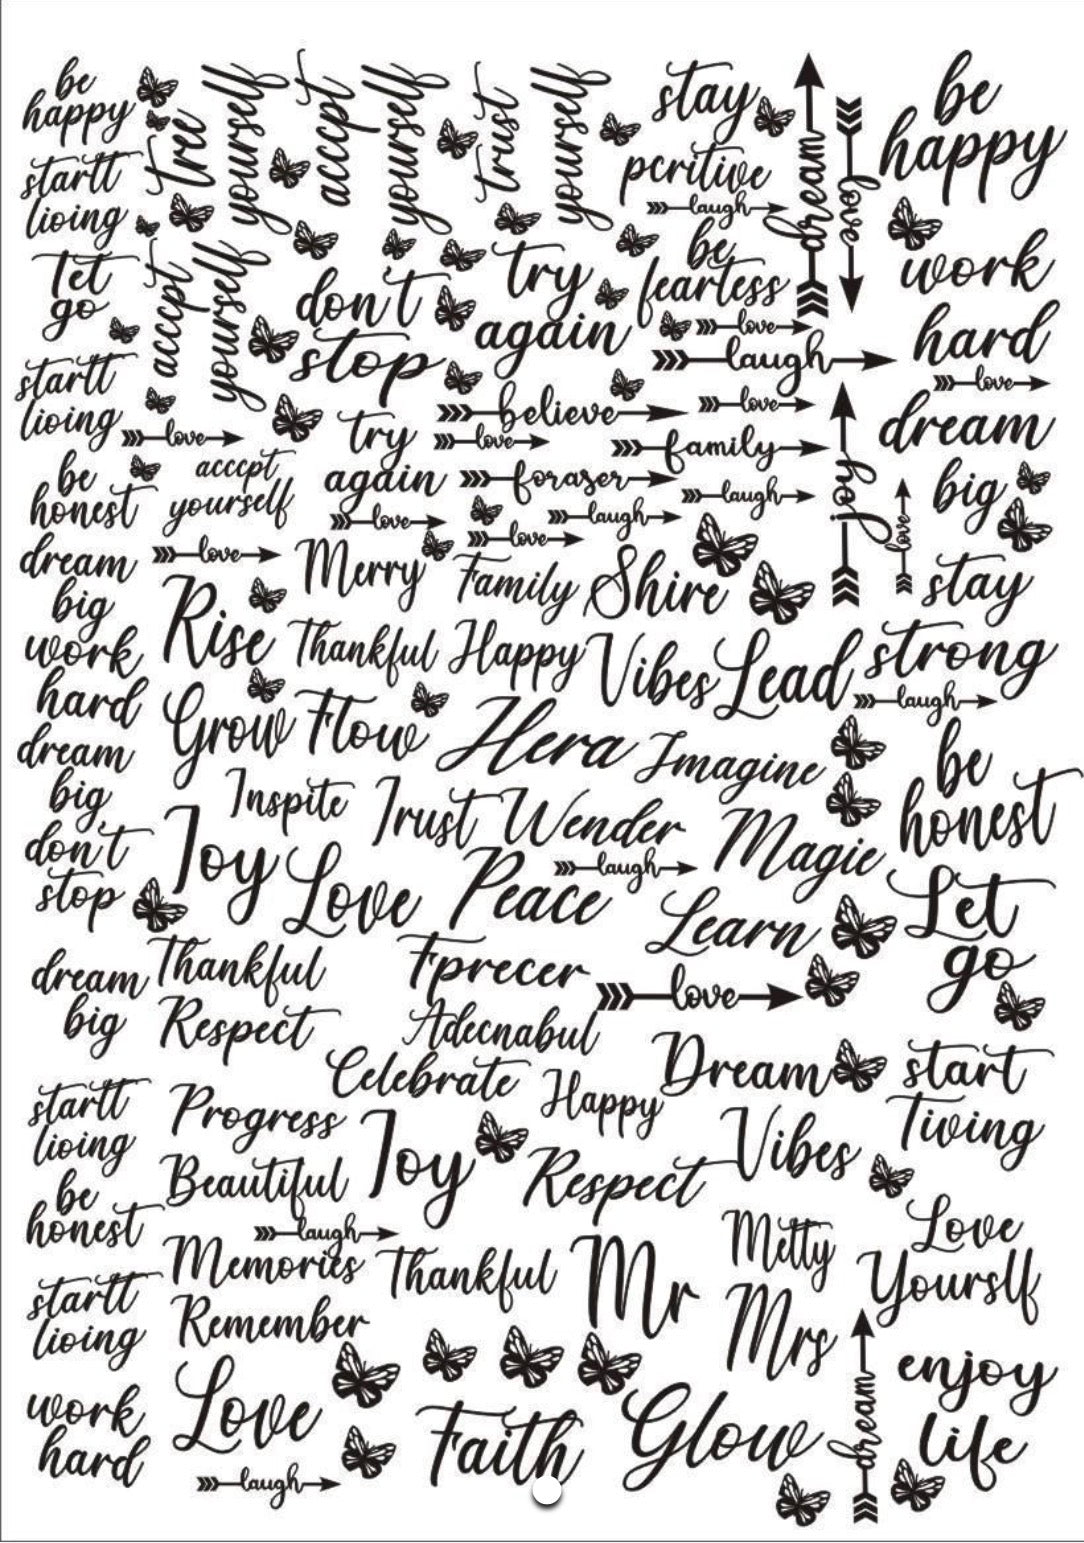 be
happy
startt
lioing
let
go
startt
lioing
be
honest
dream
big
work
hard
dream
big
don't
stop
dream
big
startt
lioing
be
honest
startt
lioing
work
hard
tree
yourself
acccpt
yourself
trust
yourself
acccpt
yourself
don't
stop
try
again
love
acccpt
yourself
try
again
love
love
stay
pcritive
laugh
be
feartess
love
laugh
believe
love
love
family
foraser
laugh
laugh
love
dream
love
joy
love
be
happy
work
hard
love
dream
big
stay
strong
laugh
be
honest
Let
go
start
Tiving
Love
Yourslf
enjoy
life
Merry
Family
Shire
Rise
Thankful
Happy
Vibes
Lead
Grow
Flow
Hera
Imagine
Inspite
Trust
Wender
laugh
Magic
Joy
Love
Peace
Learn
Thankful
Fprecer
love
Respect
Adecnabul
Celebrate
Happy
Dream
Progress
Joy
Vibes
Beautiful
Respect
laugh
Memories
Thankful
Mr
Metty
Remember
Mrs
Love
Faith
Glow
laugh
dream